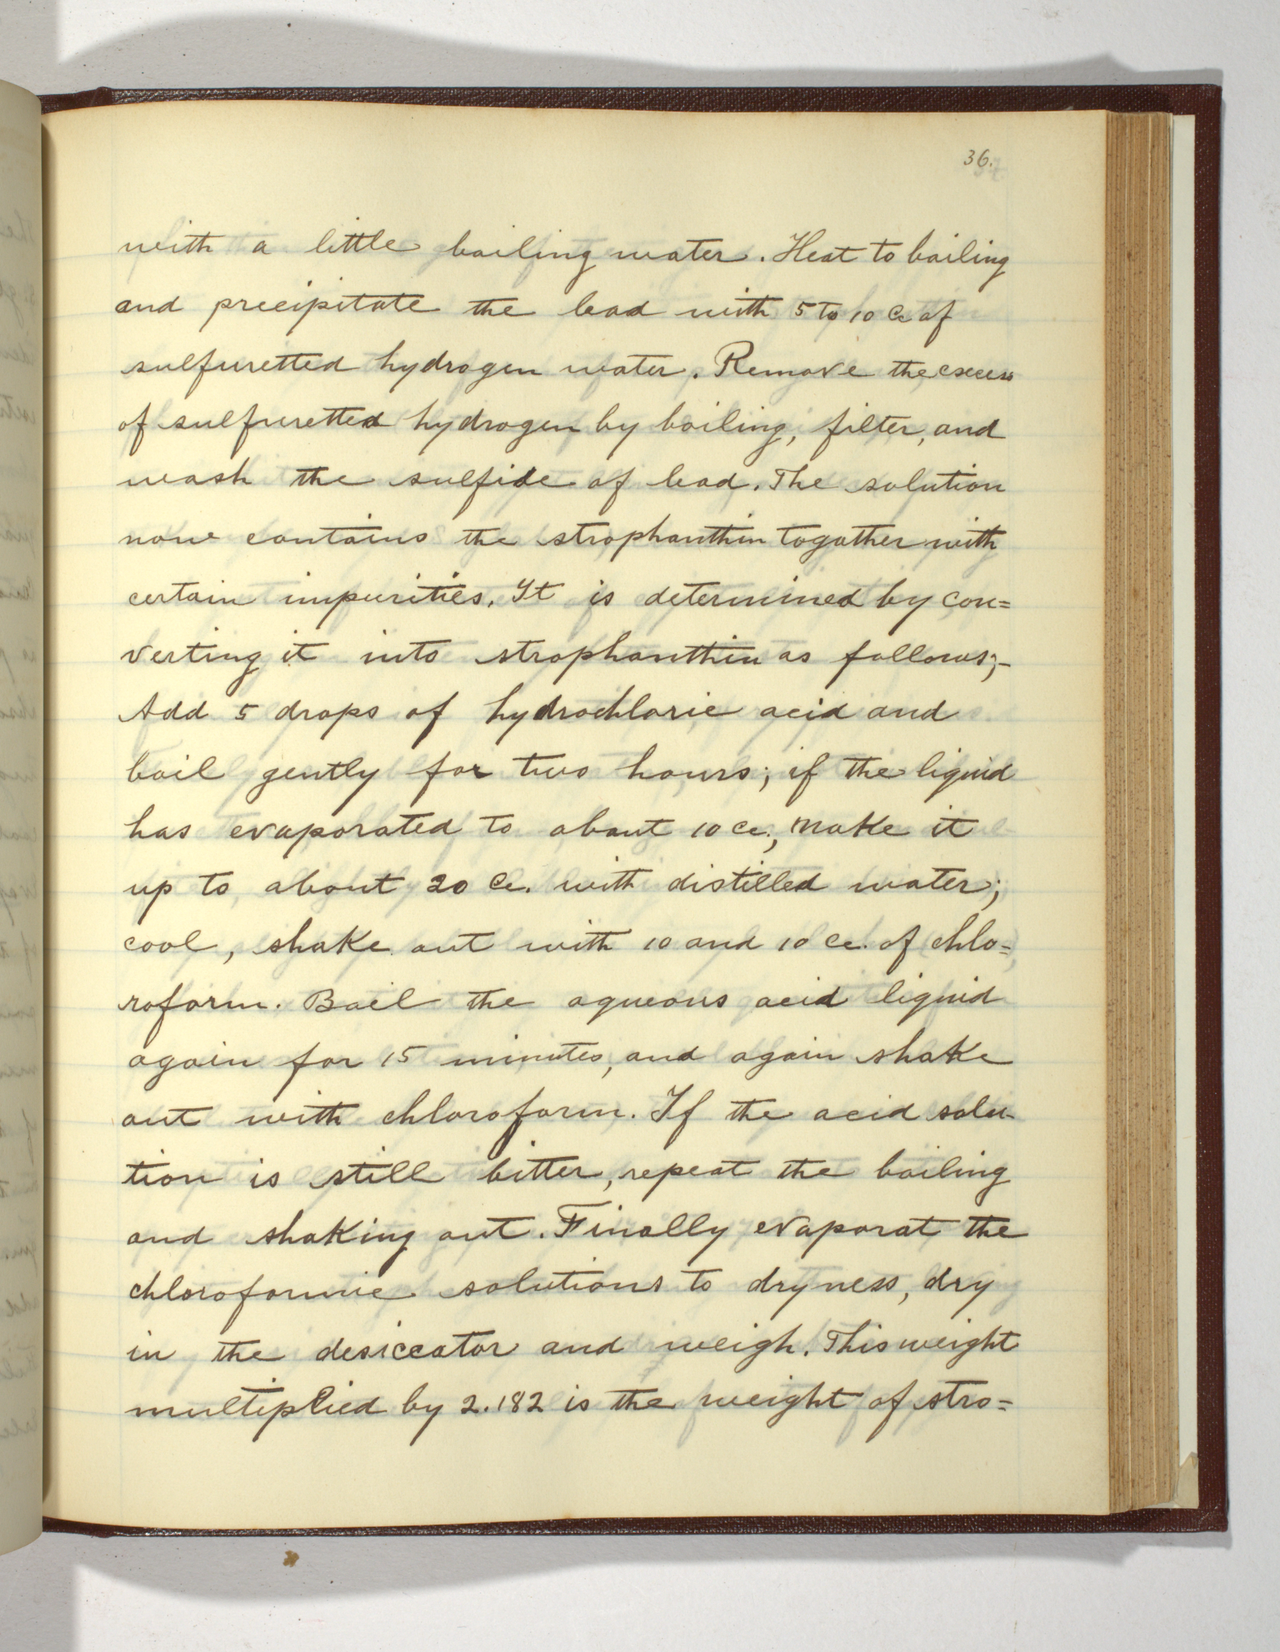 36.
with a little boiling water. Heat to boiling
and precipitate the lead with 5 to 10 Cc of
sulfuretted hydrogen water. Remove the excess
of sulfuretted hydrogen by boiling, filter, and
wash the sulfide of lead. The solution
now contains the strophanthin togather with
certain impurities. It is determined by con=
verting it into strophanthin as follows;-
Add 5 drops of hydrochloric acid and
boil gently for two hours; if the liquid
has evaporated to about 10 cc., make it
up to about 20 Cc. with distilled water;
cool, shake out with 10 and 10 cc. of chlo=
roform. Boil the aqueous acid liquid
again for 15 minutes, and again shake
out with chloroform. If the acid solu-
tion is still bitter, repeat the boiling
and shaking out. Finally evaporat the
chloroformic solutions to dryness, dry
in the desiccator and weigh. This weight
multiplied by 2.182 is the weight of stro=